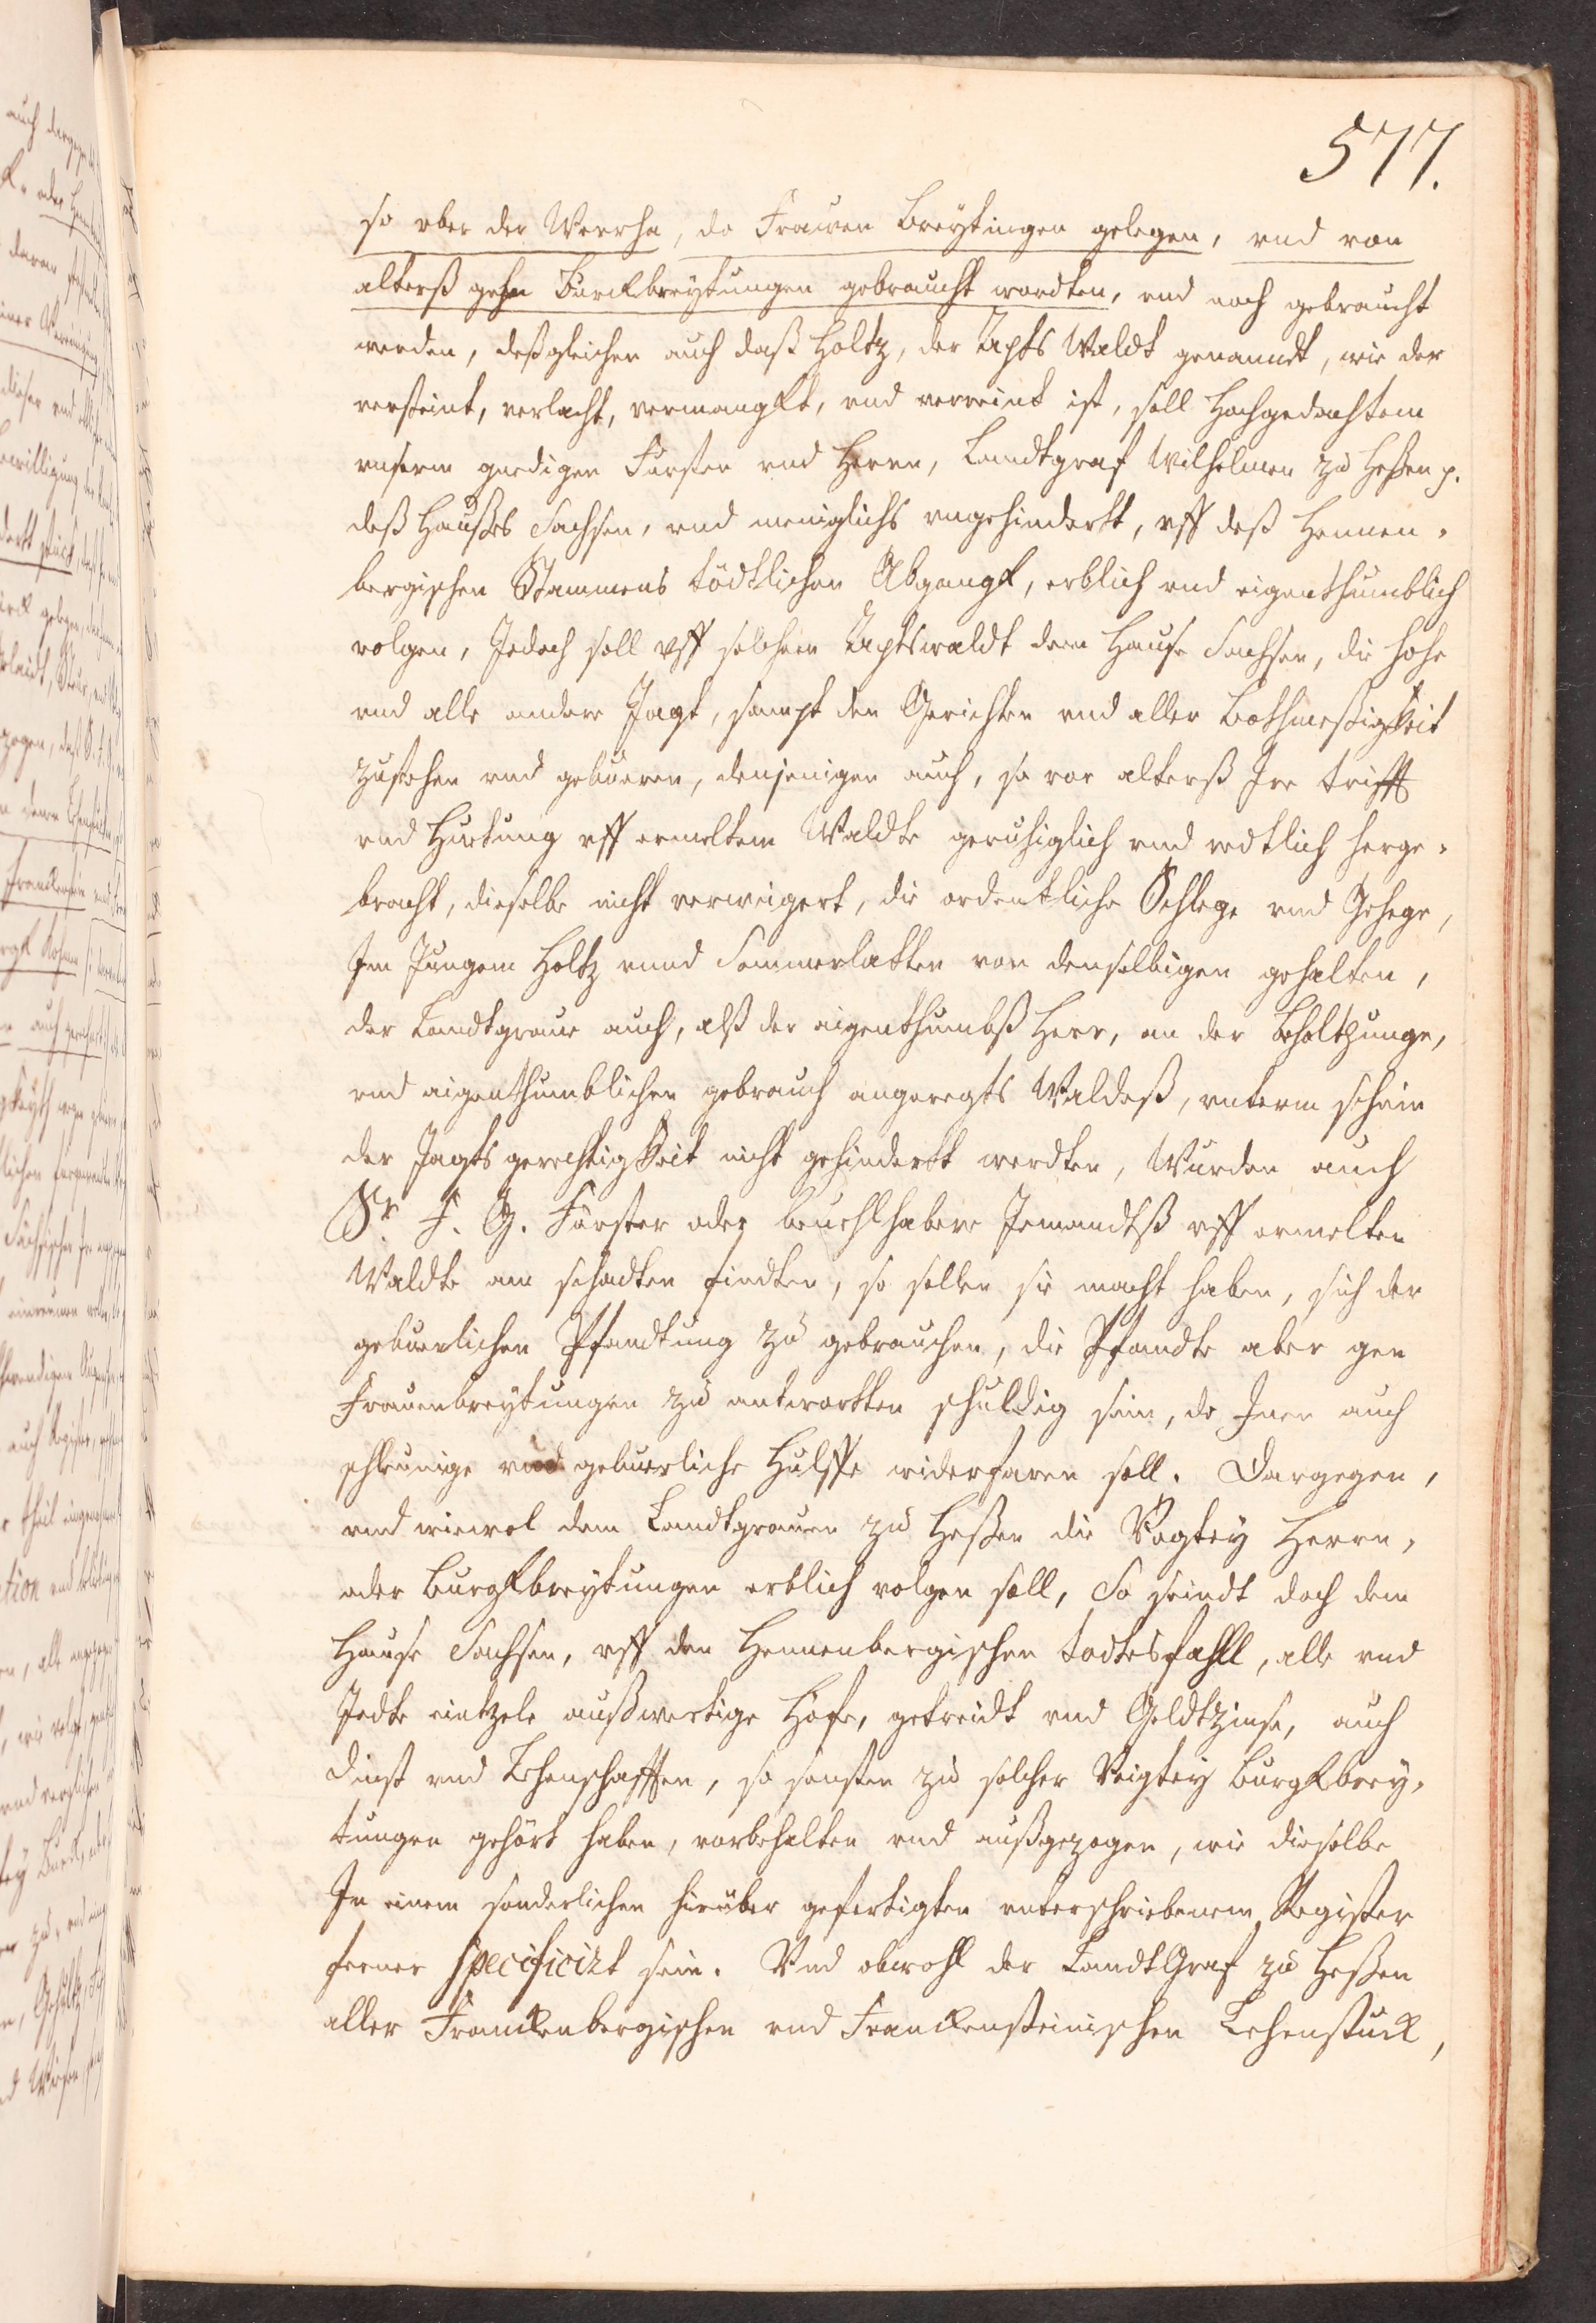 577.
so vber der Werrha, do Frawen Breytingen gelegen, vnd von
alterß gehn Burckbreytungen gebraucht wordten, vnd noch gebraucht
werden, deßgleichen auch daß Holtz, der Apts Waldt genanndt, wie der
versteint, verlacht, vermangkt, vnd verreint ist, soll Hochgedachtem
vnserm gnedigen Fursten vnd Herrn, Landtgraf Wilhelmen zu Heßen p.
deß Haußes Sachsen, vnd meniglichs vngehindertt, vff deß Hennen-
bergischen Stammens tödtlichen Abgangk, erblich vnd eigenthumblich
volgen, Jedoch soll vff solchem Aptswaldt dem Hause Sachsen, die hohe
vnd alle andere Jagt, sampt den Gerichten vnd aller Bothmeßigkeit
zustehen vnd gebueren, denjenigen auch, so vor alterß Ire trifft
vnd Huetung vff ermeltem Waldte geruhiglich vnd redtlich herge-
bracht, dieselbe nicht verweigert, die ordentliche Schlege vnd Gehege,
Im Jungem Holtz vnnd Sommerlatten von denselbigen gehalten,
der Landtgraue auch, alß der eigenthumbß Herr, an der Beholtzunge,
vnd aigenthumblichen gebrauch angeregts Waldeß, vnterm schein
der Jagts gerechtigkeit nicht gehindertt werdten, Wurden auch
Sr. F. G. Förster oder beuehlhabere Jemandtß vff ermelten
Waldte am schadten findten, so sollen sie macht haben, sich der
gebuerlichen Pfandtung zu gebrauchen, die Pfandte aber gen
Frauenbreytungen zu antwortten schuldig sein, do Inen auch
schleunige vnd gebuerliche Hulffe widerfaren soll. Dargegen,
vnd wiewol dem Landtgrauen zu Heßen die Vogtey Herrn-
oder Burgkbreytungen erblich volgen soll, So seindt doch dem
Hause Sachsen, vff den Hennenbergischen todtesfahll, alle vnd
Jedte eintzele außwertige Höfe, getreidt vnd Geldtzinse, auch
dinst vnd Lehenschafften, so sonsten zu solcher Voigtey Burgkbrey-
tungen gehört haben, vorbehalten vnd außgezogen, wie dieselbe
In einem sonderlichen hierüber gefertigten vnterschriebenem Register
ferner specificirt sein. Vnd obwohl der LandtGraf zu Heßen
aller Franckenbergischen vnd Franckensteinischen Lehenstuck,